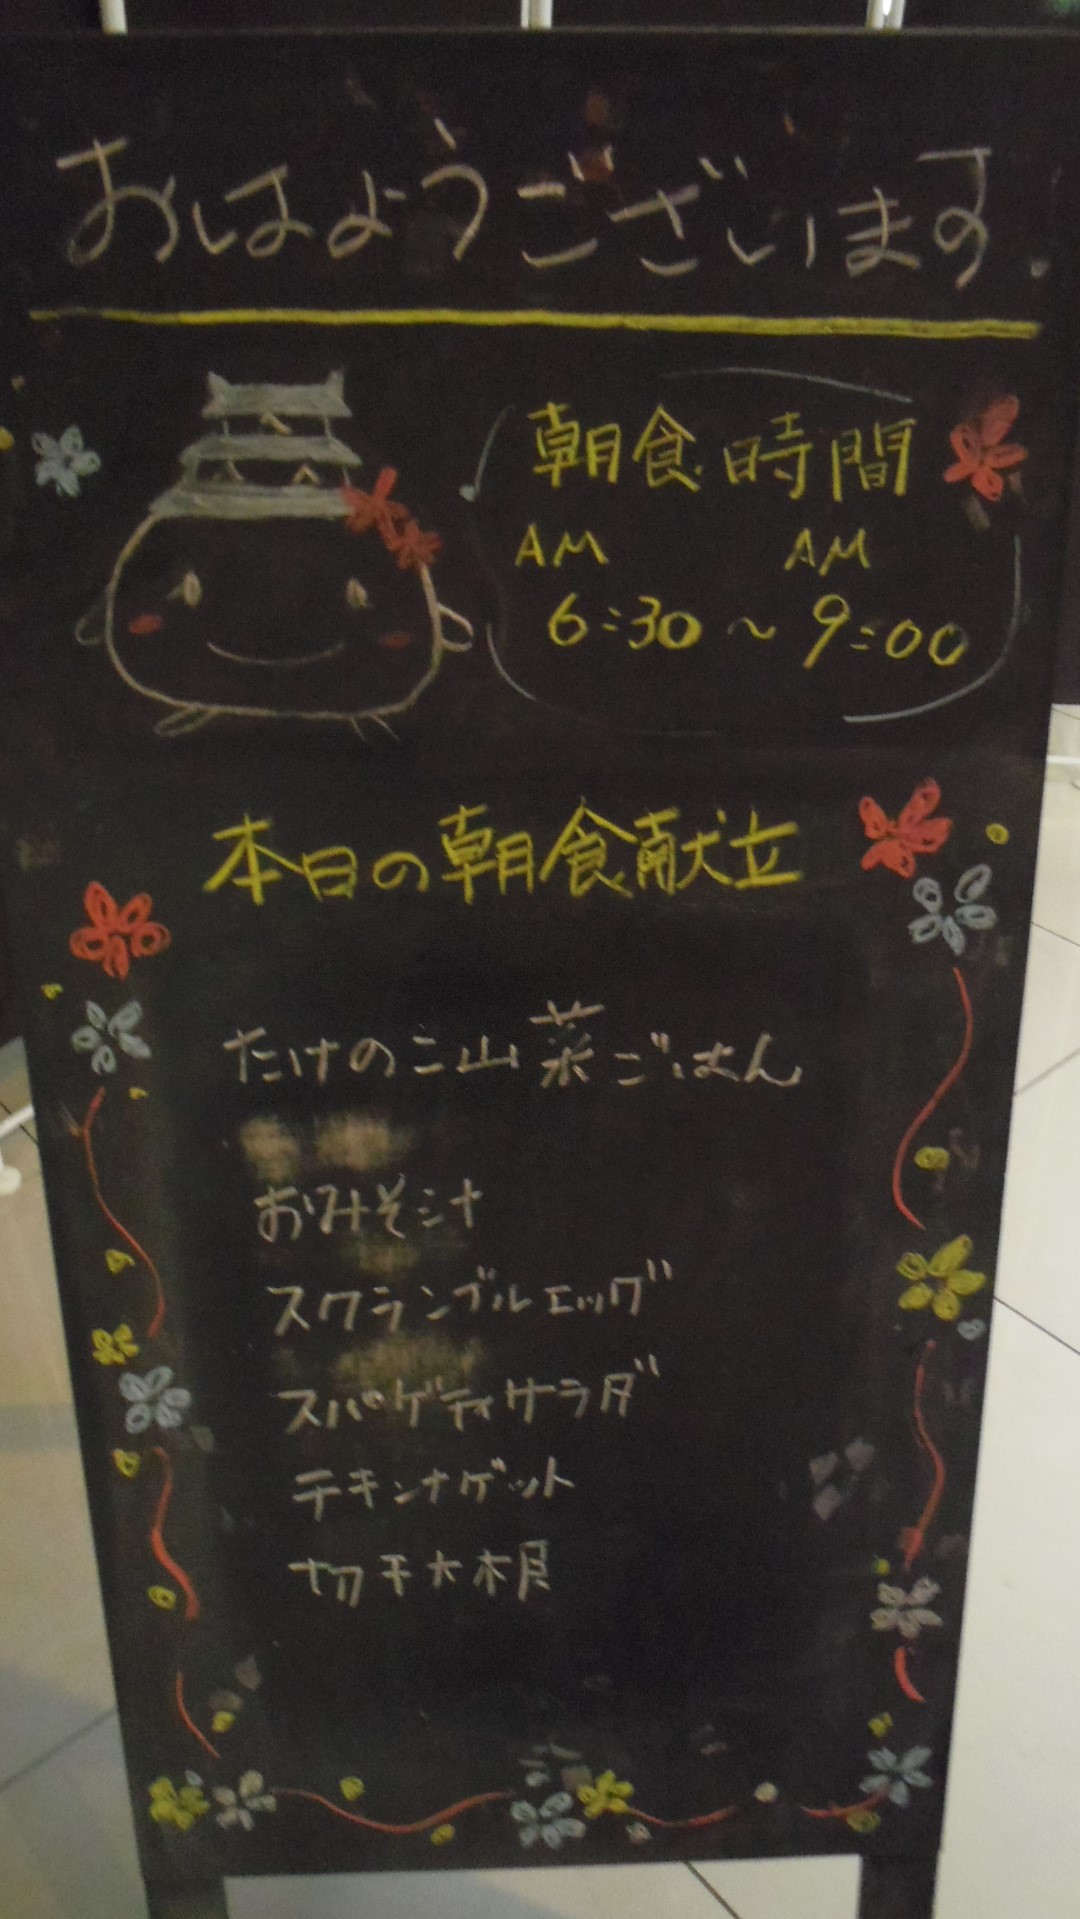 おはようございます.
朝食時間
AM AM
6:30 ~ 9:00
本日の朝食献立
たけのこ山菜ごはん
おみそ汁
スクランブルエッグ
スパゲティサラダ
チキンナゲット
切干大根